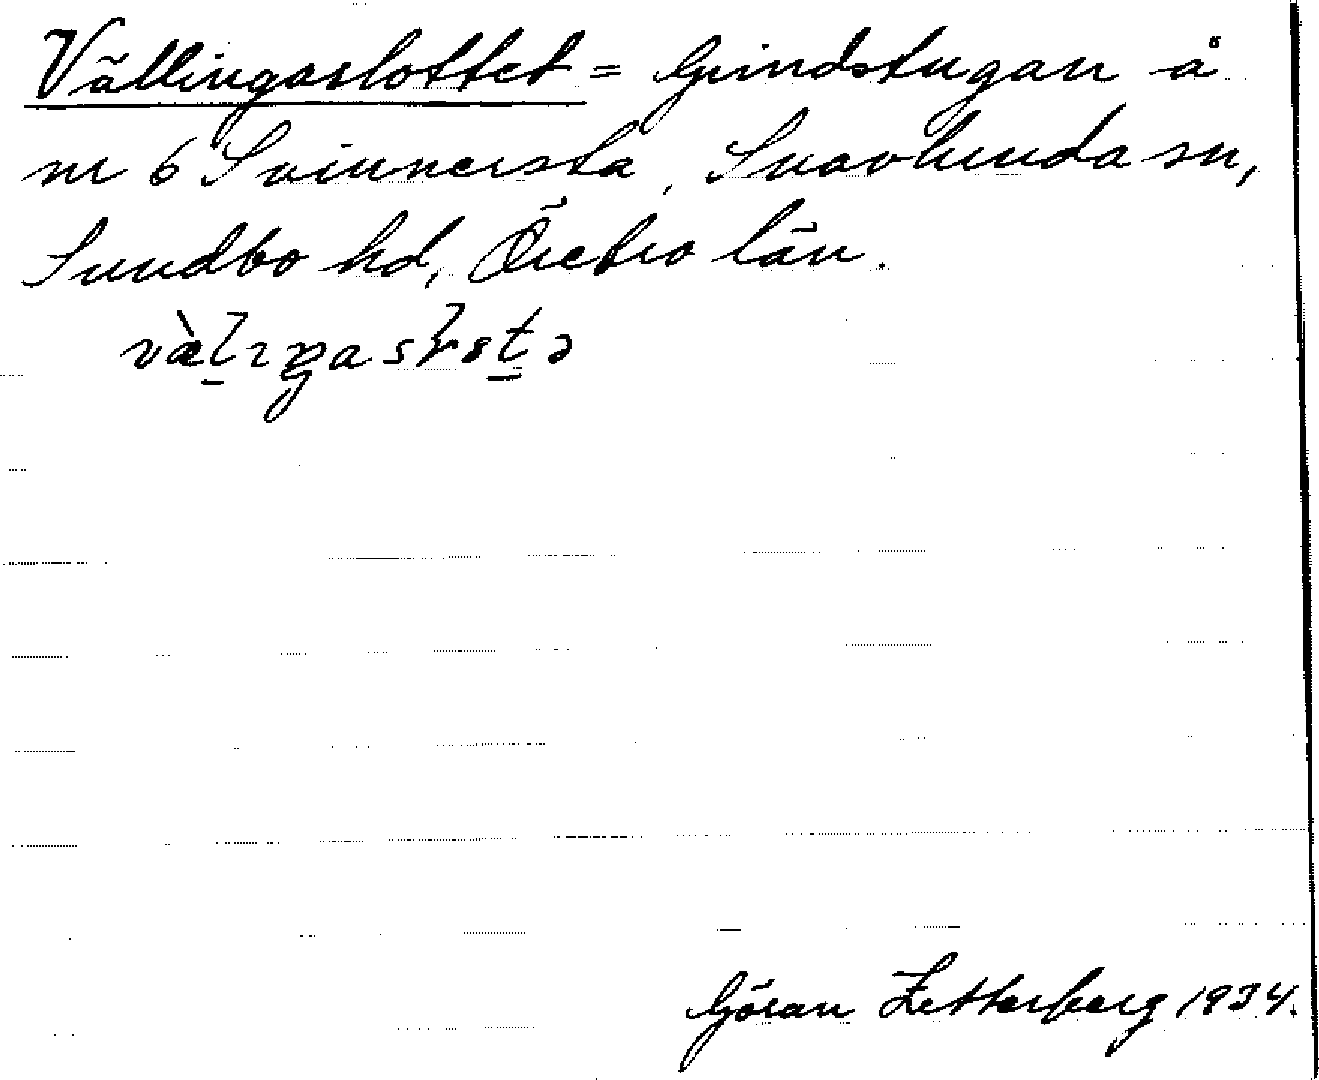 Vällingaslottet = Grindstugan å
nr 6 Svinnersta, Snavlunda sn,
Sundbo hd, Örebro län.
Göran Zetterberg 1934.